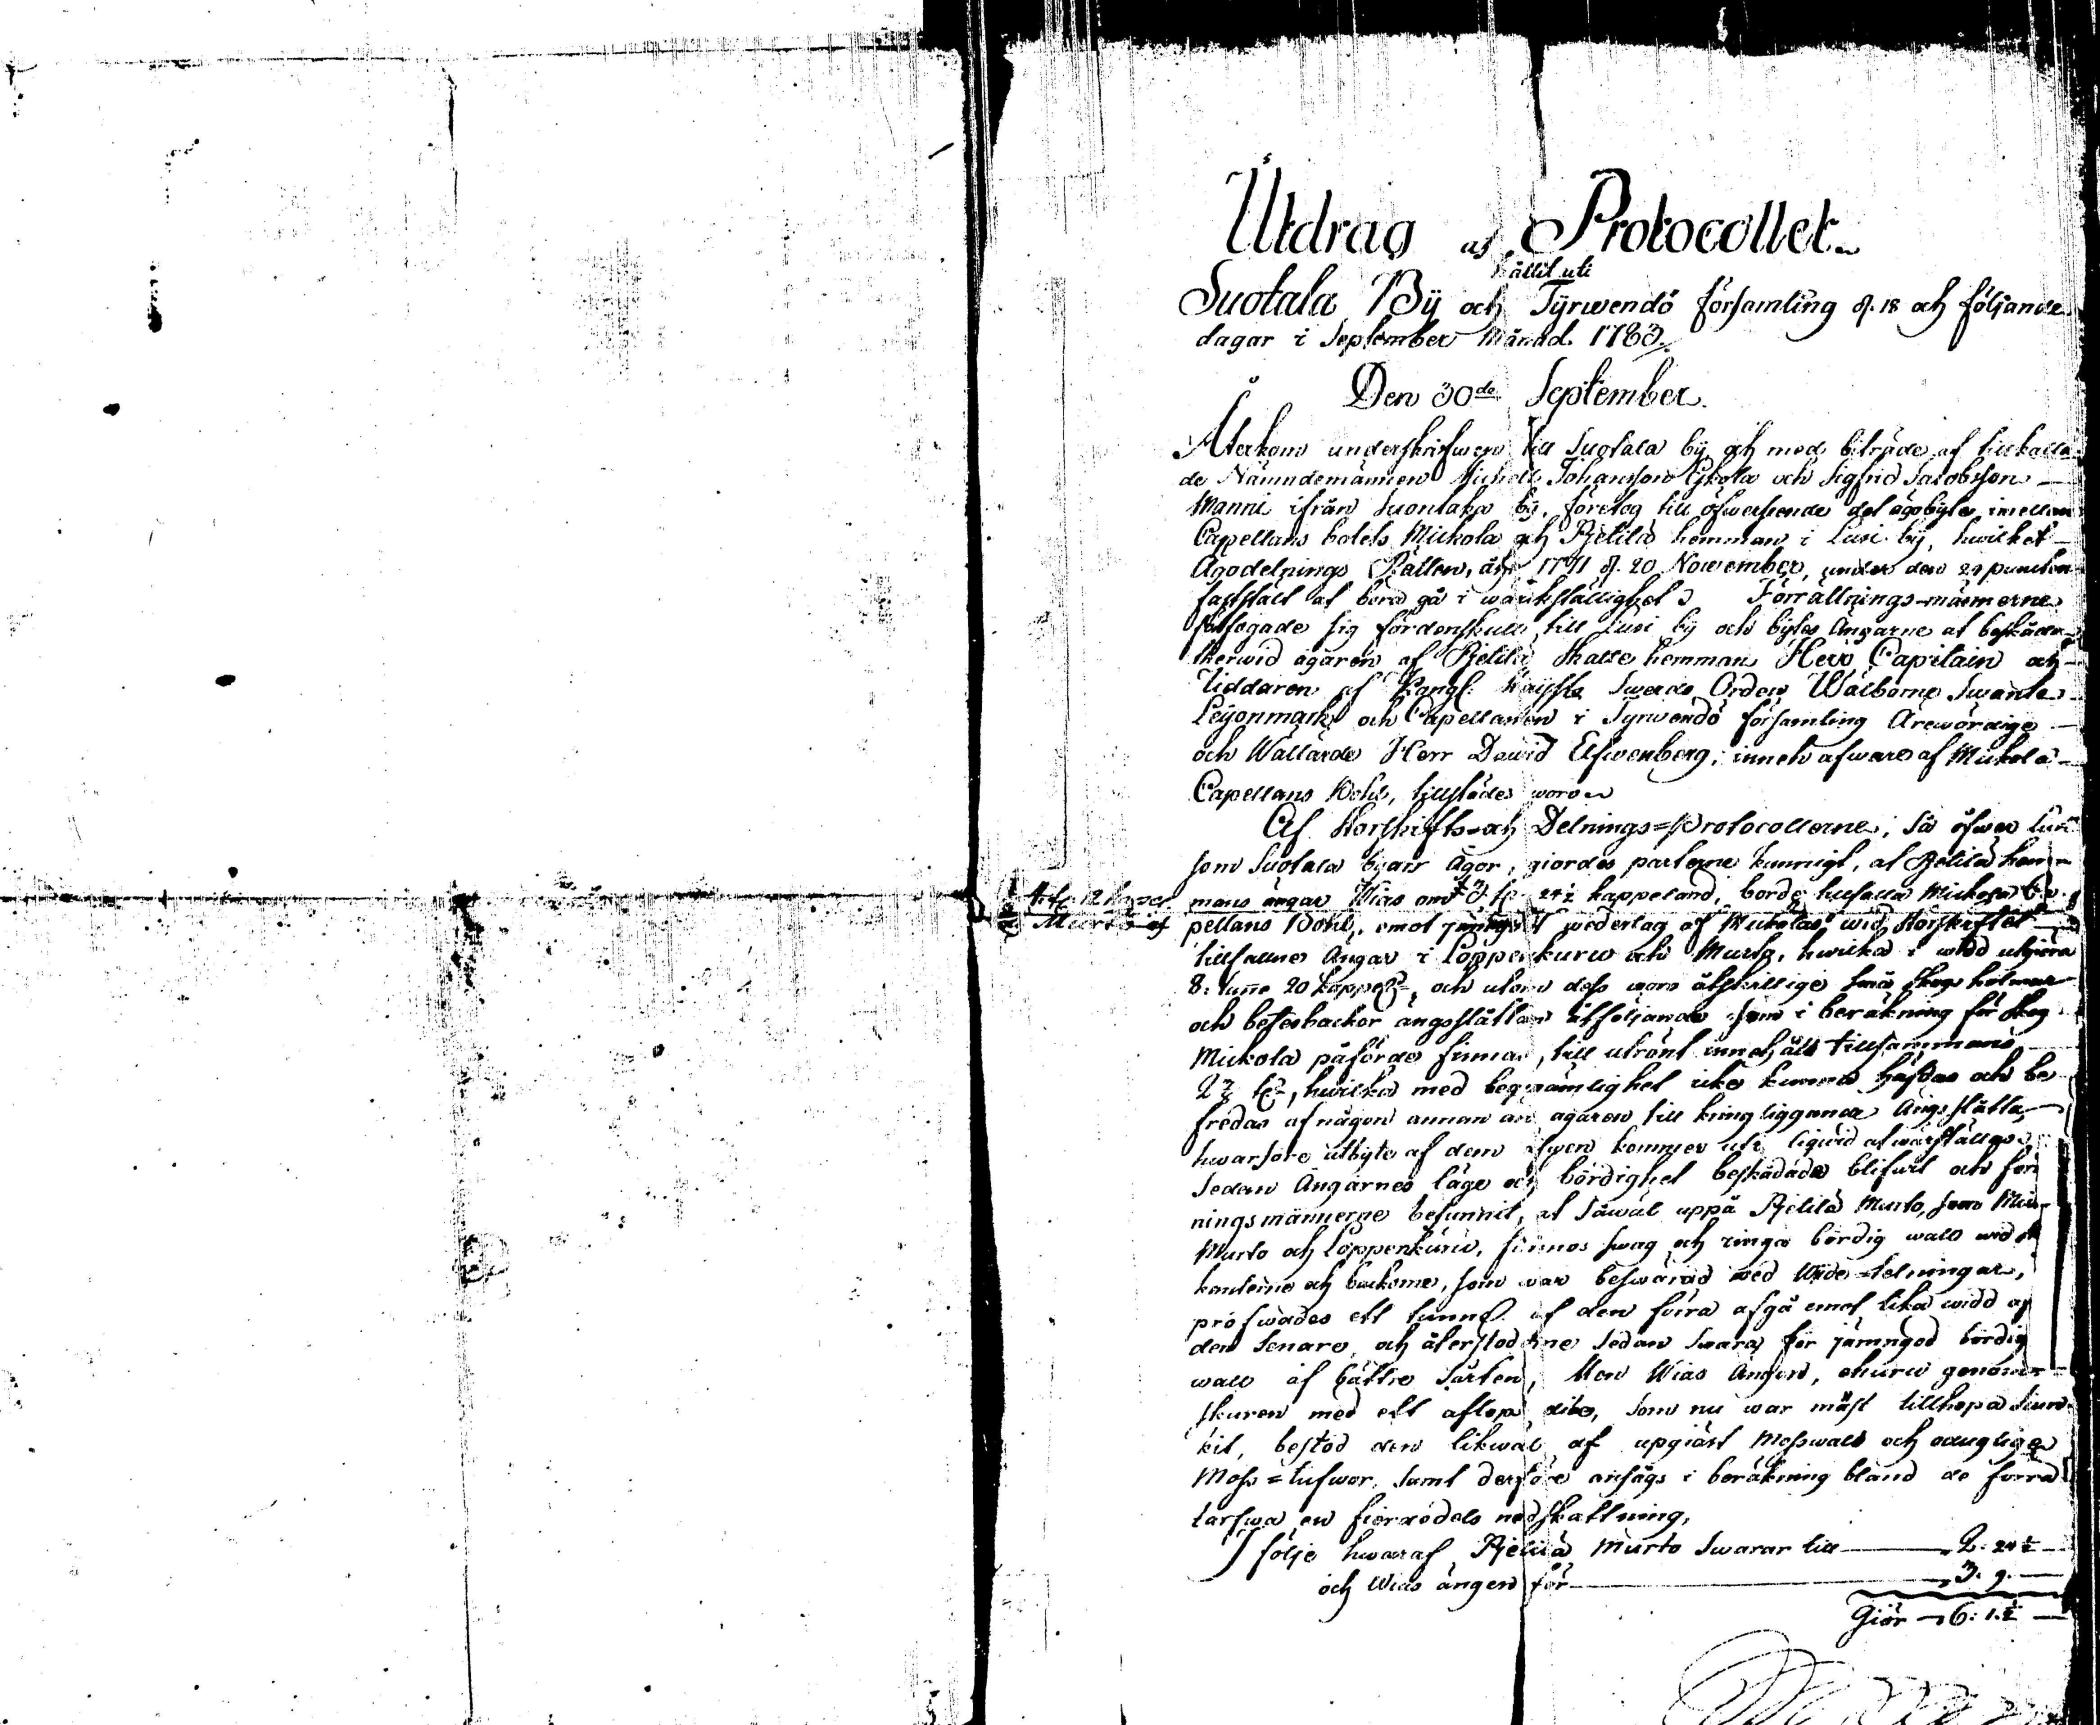 Utdrag af Protocollet
hållit uti
Suotala Bÿ och Tyrwendö församling d. 18 och följande
dagar i September Månad 1783.
Den 30de September.
Återkom underskrifwen till Suotala bÿ och med biträde af tillkalla-
de Nämndemännen Michell Johansson och Sigfrid Jacobsson
Manni ifrån Suontaka bÿ, företog till öfwerseende det ägobyte, imellan
Capellans bolets Mickola och Pjetilä hemman i Lusi bÿ, hwilket
Ägodelnings Rätten, år 1771 d. 20 November, under den 29 puncten
fastställt at böra gå i wärkställighet. Förrättnings-männerne
förfogade sig fördenskull till Lusi bÿ och bytes Ängarne at beskåda,
herwid ägaren af Pjetilä Skatte hemman Herr Capitain och
Riddaren af Kongl. Swerds Orden Wälborne Swante
Leÿonmark och Capellanen i Tyrwendö församling Ärewördige
och Wällärde Herr Dawid Elfwenberg, innehafware af Mickola
Capellans Bohl, tillstädes woro.
Af Storskifts och Delnings-Protocollerne, så öfwer Lusi
som Suotala byars ägor, giordes parterne kunnigt, at Pjetilä hem-
mans ängar Wias om 24½ kappeland, borde tillfalla Mickola Ca-
pellans Bohl, emot wederlag af Mickolas wid Storskiftet
tillfallne Ängar i Loppenkuru och Murto, hwilka i widd utgiöra
8. tunne 20 kappel, och utom dess woro åtskillige små skogs holmar
och betesbackor ängsslåttan åtföljande som i beräkning för skog
Mickola påförde finnas, till utrönt innehåll tillsammans
hwilka med beqwämlighet icke kunna häfdas och be-
fredas af någon annan än ägaren till kringliggande Ängsslåtta,
hwarföre utbyte af dem äfwen kommer uti liqwid at wärställas.
Sedan Ängarnes läge och bördighet beskådade blifwit och förrätt-
ningsmännerne befunnit, at såwäl uppå Pjetilä Murto, som
Murto och Loppenkuru, finnes swag och ringa bördig wall wid
kanterne och backorne, som war beswärad med Wide-telningar,
pröfwades ett tunnel. af den förra afgå emot lika widd af
den senare, och återstoderne sedan swara för jämngod bördig
wall af bättre sorten, Men Wias Ängen, ehuru genom-
skuren med ett aflops dike, som nu war mäst tillhopa siun-
kit, bestod den likwäl af upgiöst Mosswall och odugliga
Moss-tufwor, samt derföre ansågs i beräkning bland de förra
tarfwa en fierdedels nedskattning,
I följe hwaraf Pjetilä Murto swarar till 2. 24½
och Wias ängen för 3. 9.
Giör 6: 1.½